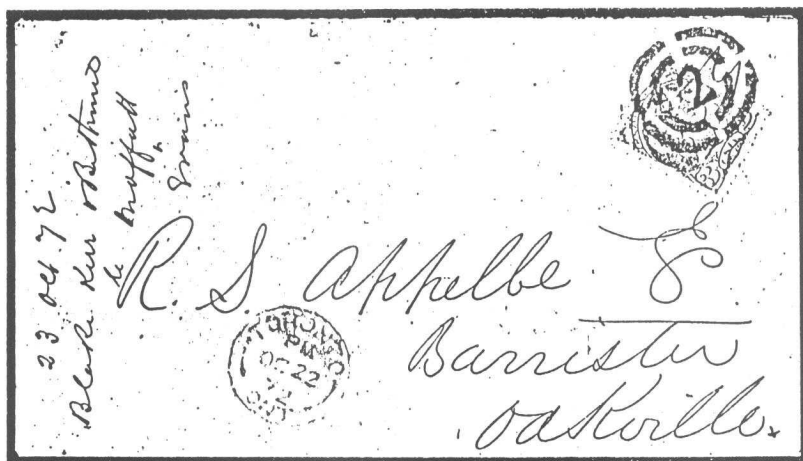 23 Oct. 72
Blake Kerr & Bethune
Moffatt
R. S. Appelbe E
Barrister
Oakville.
TORONTO
PM
OC 22
72
ONT
2